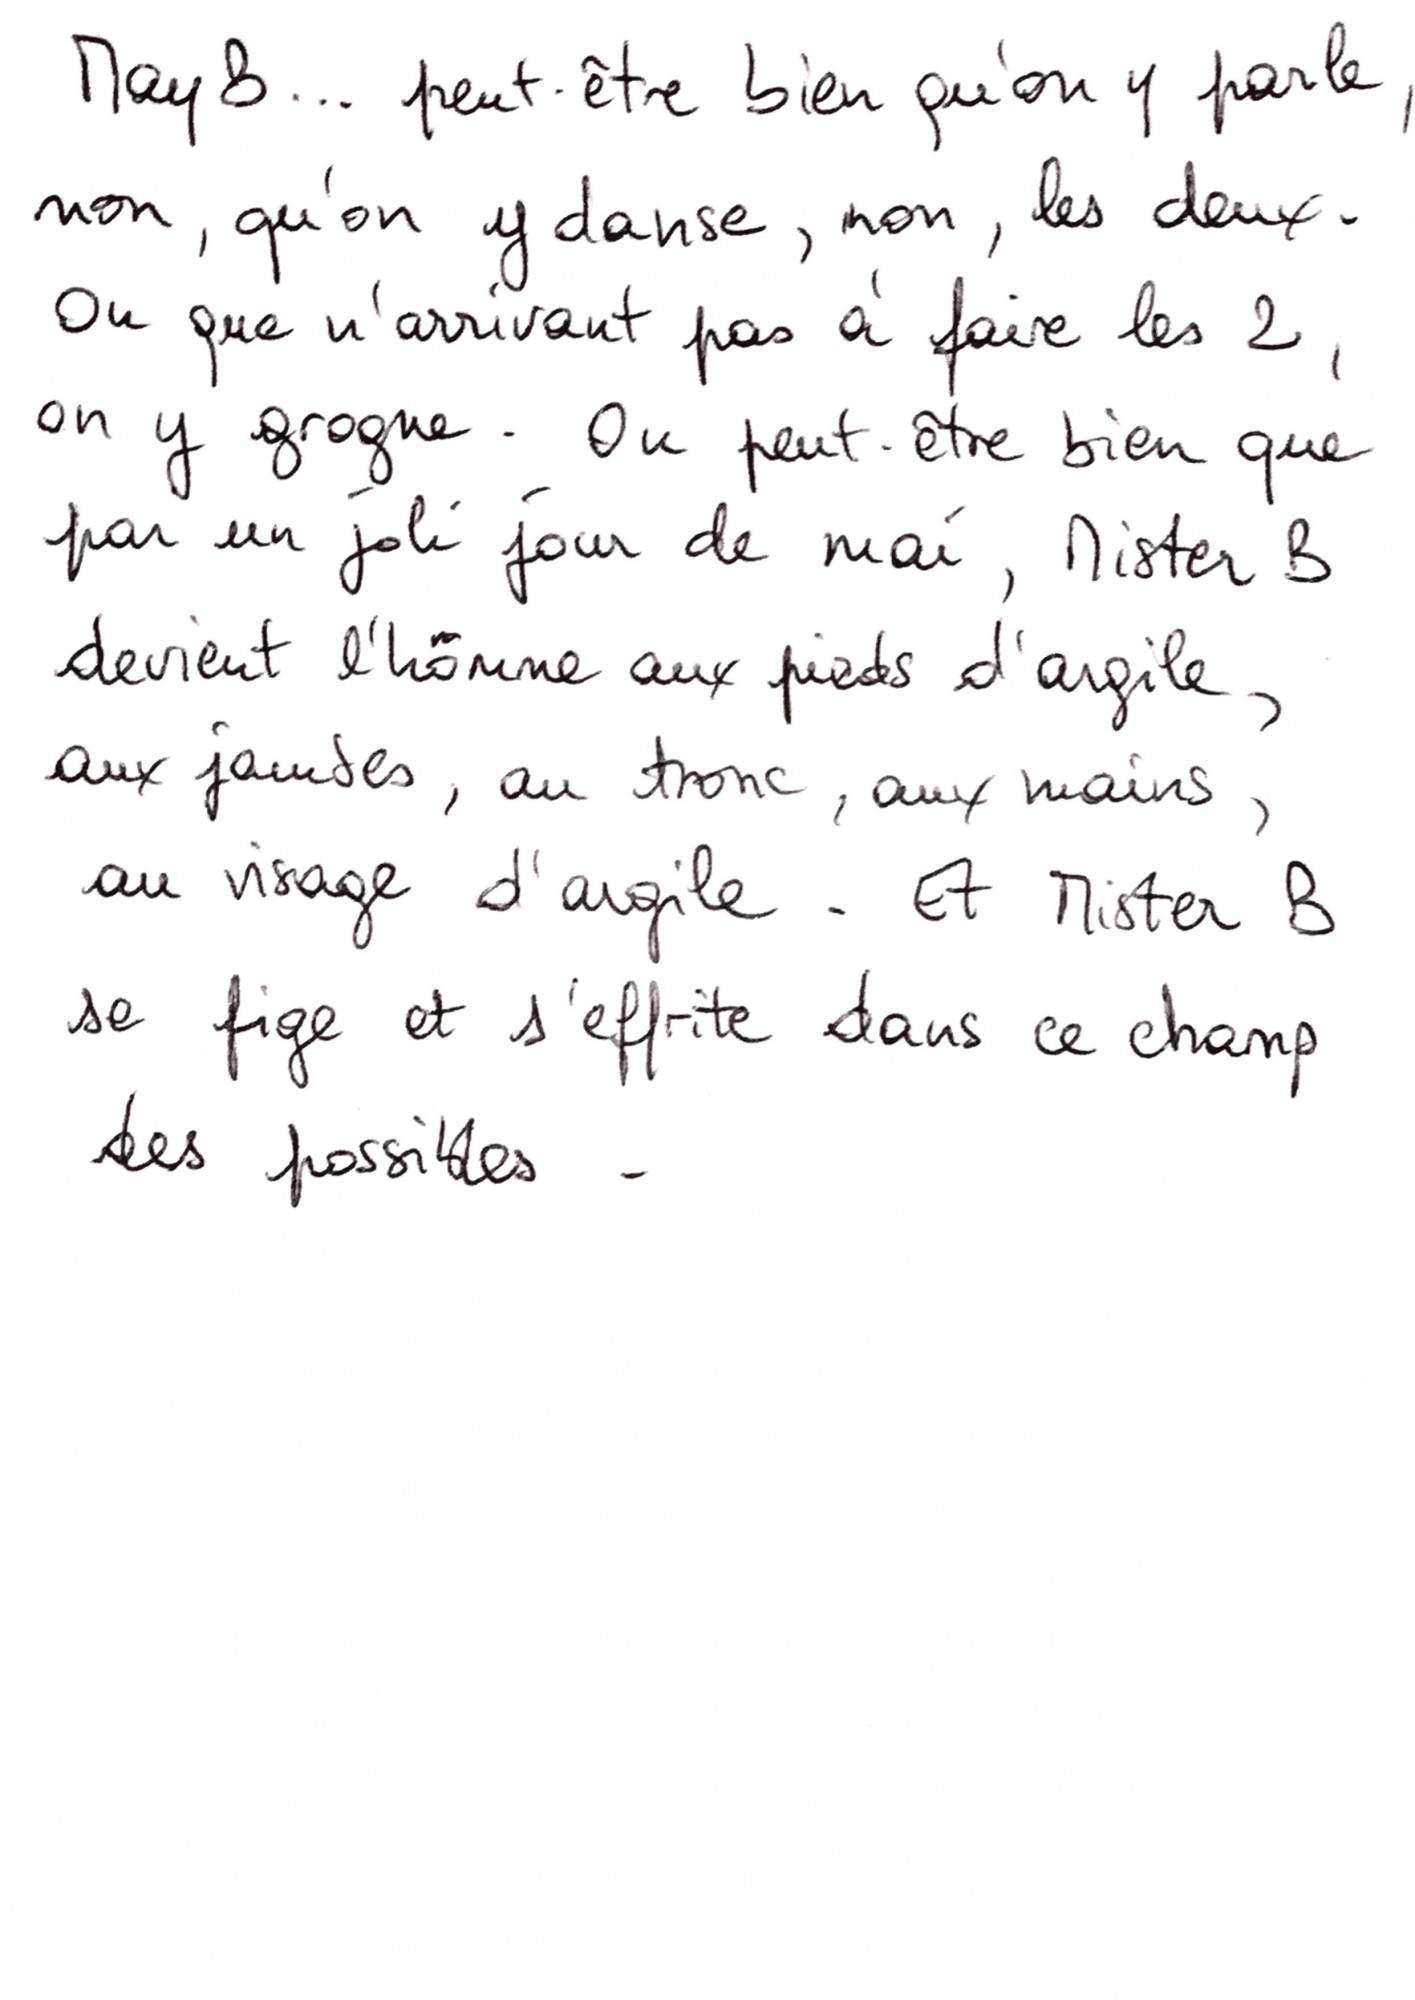 May B... peut-être bien qu'on y parle,
non, qu'on y danse, non, les deux.
Ou que n'arrivant pas à faire les 2,
on y grogne. Ou peut-être bien que
par un joli jour de mai, Mister B
devient l'hõmme aux pieds d'argile,
aux jambes, au tronc, aux mains,
au visage d'argile. Et Mister B
se fige et s'effrite dans ce champ
des possibles.